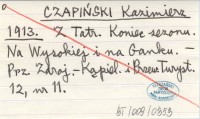 CZAPIŃSKI Kazimierz
1913. Z Tatr. Koniec sezonu.
Na Wysokiej i na Ganku. –
Prz. Zdroj.-Kąpiel. i Przew. Turyst.
12, nr 11.
BT/009/0353